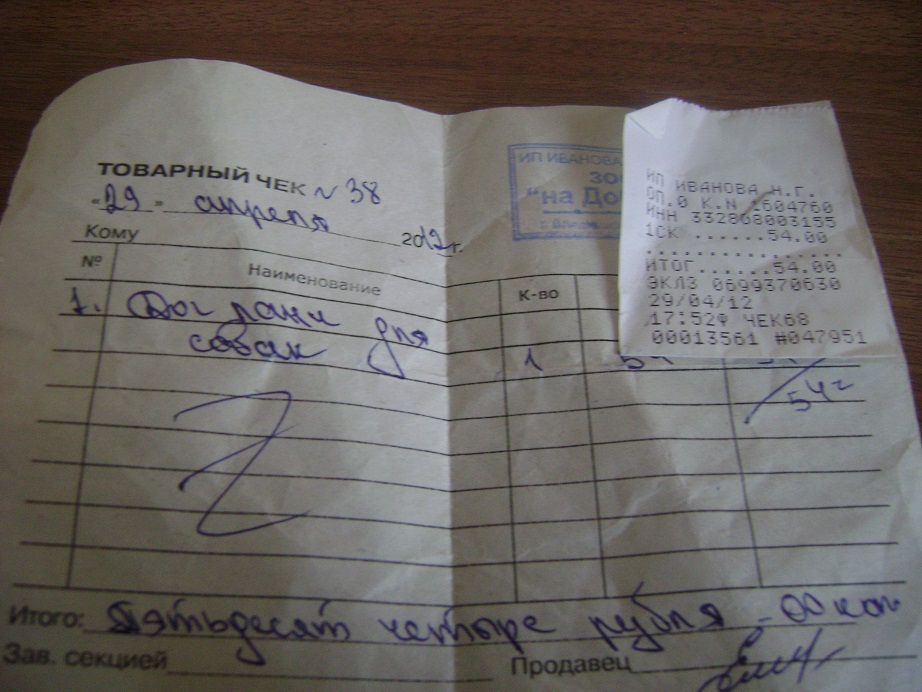 ТОВАРНЫЙ ЧЕК № 38
«29» апреля 2012 г.
Кому
ИП ИВАНОВА
ЗОО
"на До
№ Наименование К-во
1. Дог ланч для
собак 1 54
54=
Итого: Пятьдесят четыре рубля - 00 коп
Зав. секцией Продавец
ИП ИВАНОВА Н.Г.
ОП.0 К.N 1604760
ИНН 332868003155
1СК ......54.00
................
ИТОГ......54.00
ЭКЛЗ 0699370630
29/04/12
17:52Ф ЧЕК68
00013561 #047951